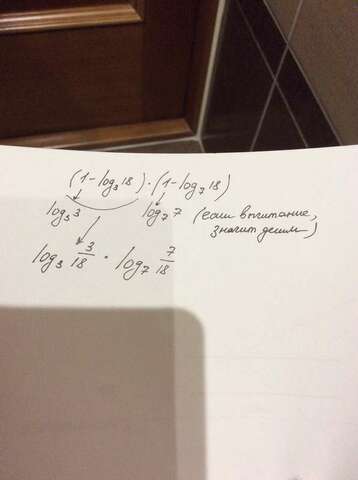 (1-log₃18)·(1-log₇18)
log₃3 log₇7 (если вычитание,
значит делим)
log₃ 3/18 · log₇ 7/18